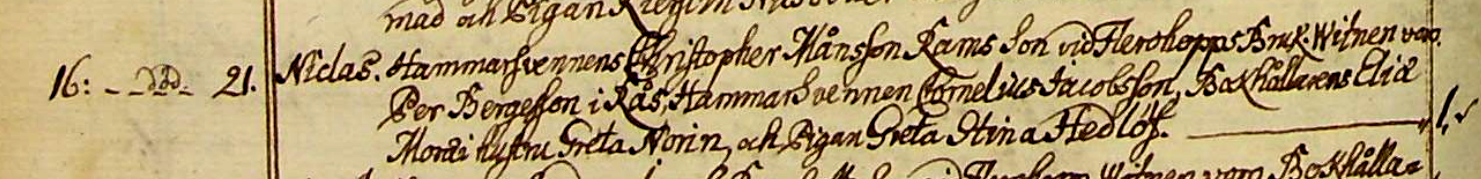 mad och Pigan
16: - ddo. - 21. Niclas. Hammarsvennens Christopher Månsson Rams Son vid Flerohopps Bruk. Witnen voro.
Per Bergesson i Rås, Hammarsvennen Cornelius Jacobsson, Bokhållarens Eliæ
Moræi hustru Greta Norin, och Pigan Greta Stina Hedlöf. 1.
Witnen voro Bokhålla=